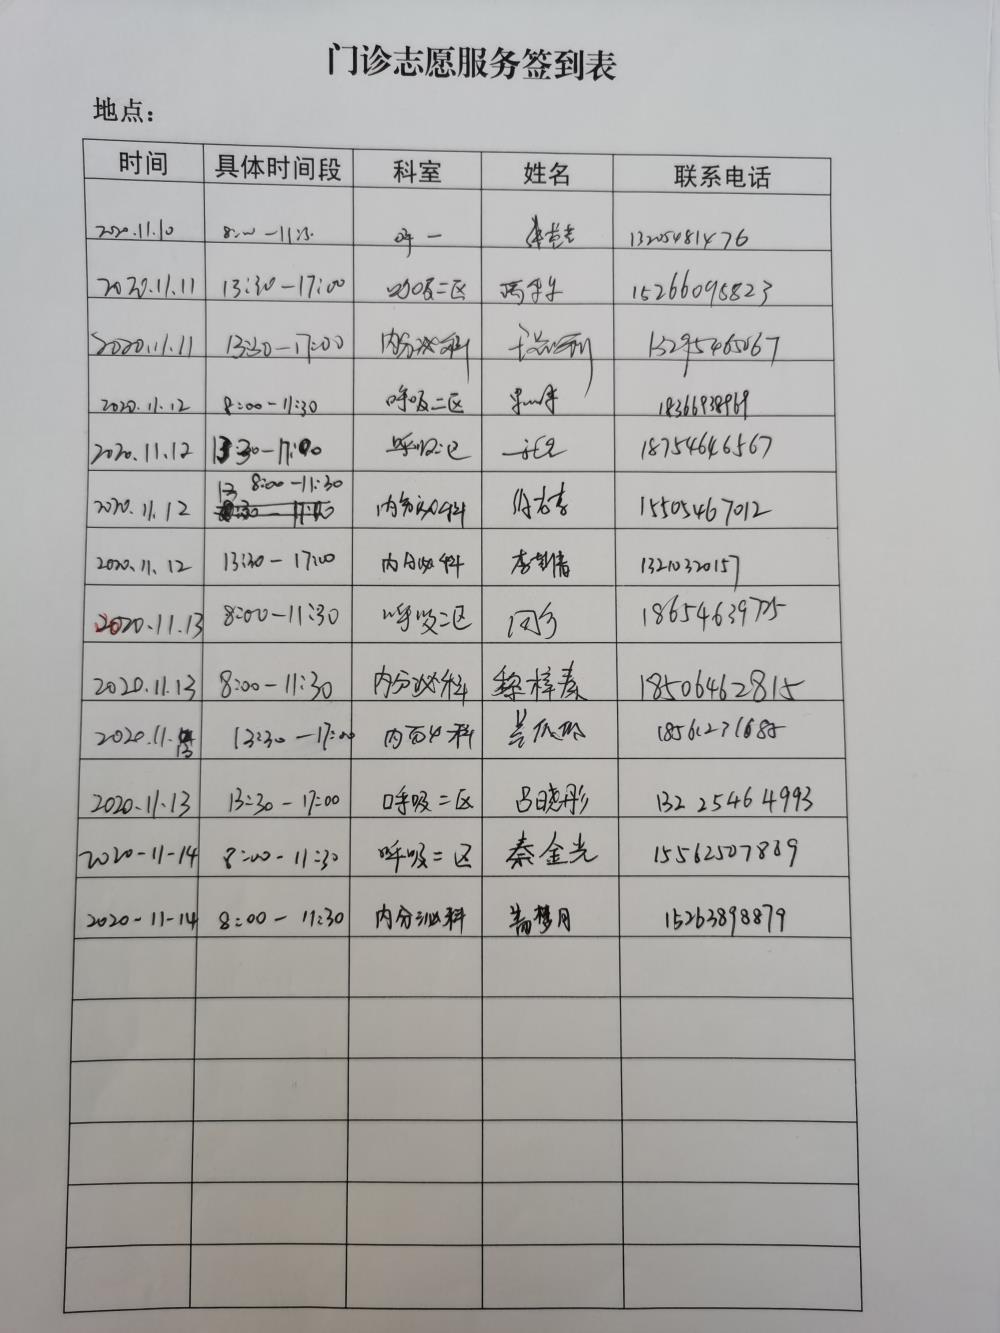 门诊志愿服务签到表
地点：
时间 具体时间段 科室 姓名 联系电话
2020.11.10 8:00-11:30 呼一 13205481476
2020.11.11 13:30-17:00 呼吸二区 15266095823
2020.11.11 13:30-17:00 内分泌科 13295465067
2020.11.12 8:00-11:30 呼吸二区 18366938969
2020.11.12 13:30-17:00 呼吸二区 18754646567
2020.11.12 8:00-11:30 内分泌科 15505467012
2020.11.12 13:30-17:00 内分泌科 13210320157
2020.11.13 8:00-11:30 呼吸二区 18654639725
2020.11.13 8:00-11:30 内分泌科 黎梓秦 18506462815
2020.11.13 13:30-17:00 内分泌科 18561231685
2020.11.13 13:30-17:00 呼吸二区 吕晓彤 13225464993
2020-11-14 8:00-11:30 呼吸二区 秦金光 15562507869
2020-11-14 8:00-11:30 内分泌科 15263898879